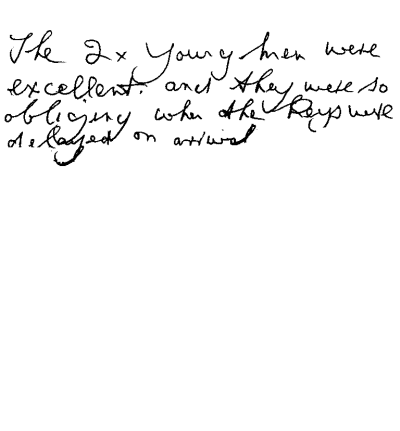 The 2x young men were
excellent. and they were so
obliging when the keys were
delayed on arrival